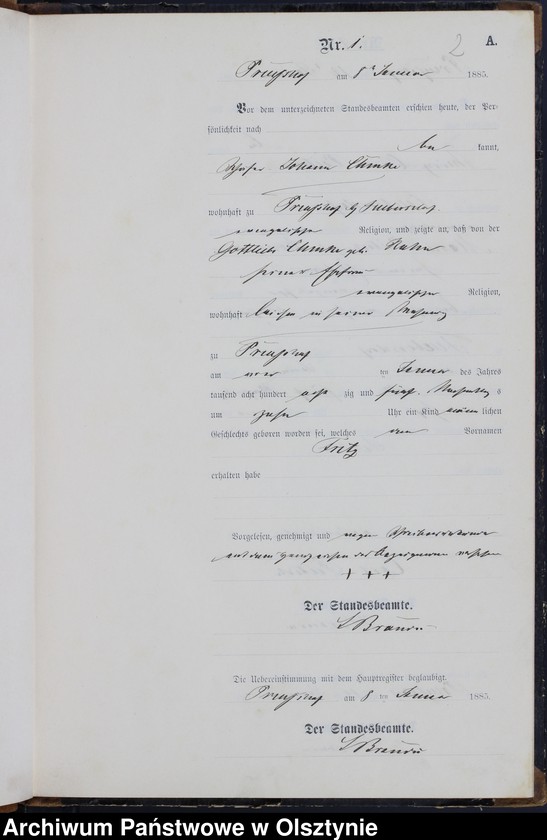 Nr. 1. 2 A.
Preußhof am 8t Januar 1885.
Vor dem unterzeichneten Standesbeamten erschien heute, der Per-
sönlichkeit nach
be kannt,
Johann
wohnhaft zu Preußhof bei
evangelischer Religion, und zeigte an, daß von der
geb.
seiner Ehefrau
evangelischer Religion,
wohnhaft bei ihm in seiner Wohnung
zu Preußhof
am ten Januar des Jahres
tausend acht hundert acht zig und fünf, Nachmittags
um zehn Uhr ein Kind männ lichen
Geschlechts geboren worden sei, welches den Vornamen
Fritz
erhalten habe
Vorgelesen, genehmigt und wegen
mit dem Handzeichen des versehen
+ + +
Der Standesbeamte.
Die Uebereinstimmung mit dem Hauptregister beglaubigt.
Preußhof am 8 ten Januar 1885.
Der Standesbeamte.
Archiwum Państwowe w Olsztynie